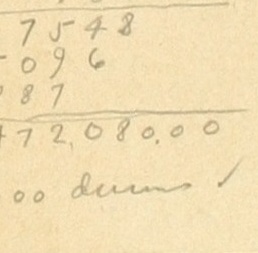 7548
096
87
72,080.00
00